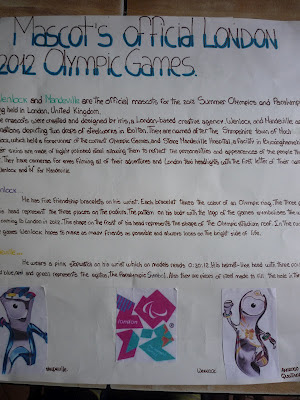 Mascot's official LONDON
2012 Olympic Games.
Wenlock and Mandeville are the official mascots for the 2012 Summer Olympics and Paralympics
being held in London, United Kingdom.
mascots were created and designed by iris, a London-based creative agency. Wenlock and Mandeville are
depicting two drops of steelworks in Bolton. They are named after the Shropshire town of Much
Wenlock, which held a forerunner of the current Olympic Games, and Stoke Mandeville Hospital, a facility in Buckinghamshire
skins are made of highly polished steel allowing them to reflect the personalities and appearances of the people
They have cameras for eyes filming all of their adventures and London taxi headlights with the first letter of their name
Wenlock and M for Mandeville.
Wenlock
He has five friendship bracelets on his wrist. Each bracelet takes the colour of an Olympic ring. The three
his head represent the three places on the podium. The pattern on his body with the logo of the games symbolises the
coming to London in 2012. The shape on the front of his head represents the shape of the Olympic Stadium roof. In the
games Wenlock hopes to make as many friends as possible and always looks on the bright side of life.
He wears a pink stopwatch on his wrist which on models reads 0:20.12. His helmet-like head with three
blue, red and green represents the agitos, the Paralympic Symbol. Also there are pieces of steel made to
LONDON
MANDEVILLE
WENLOCK